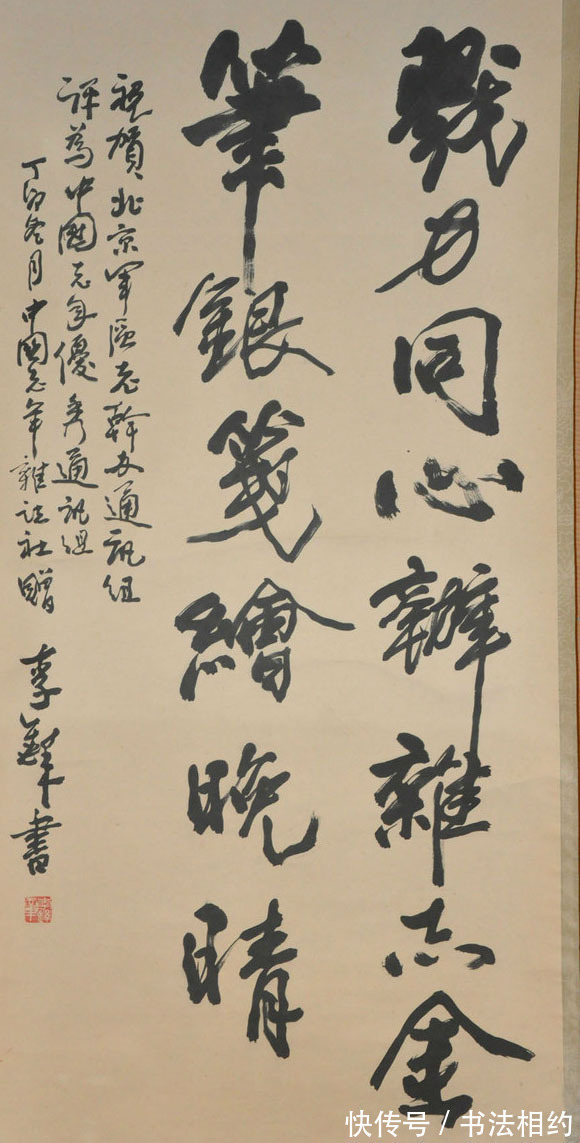 戮力同心辦雜志金
筆銀箋繪晚晴
祝賀北京軍區老幹办通訊组
评為中國老年優秀通訊组
丁卯冬月中國老年雜誌社贈
李鐸書
快传号 / 书法相约